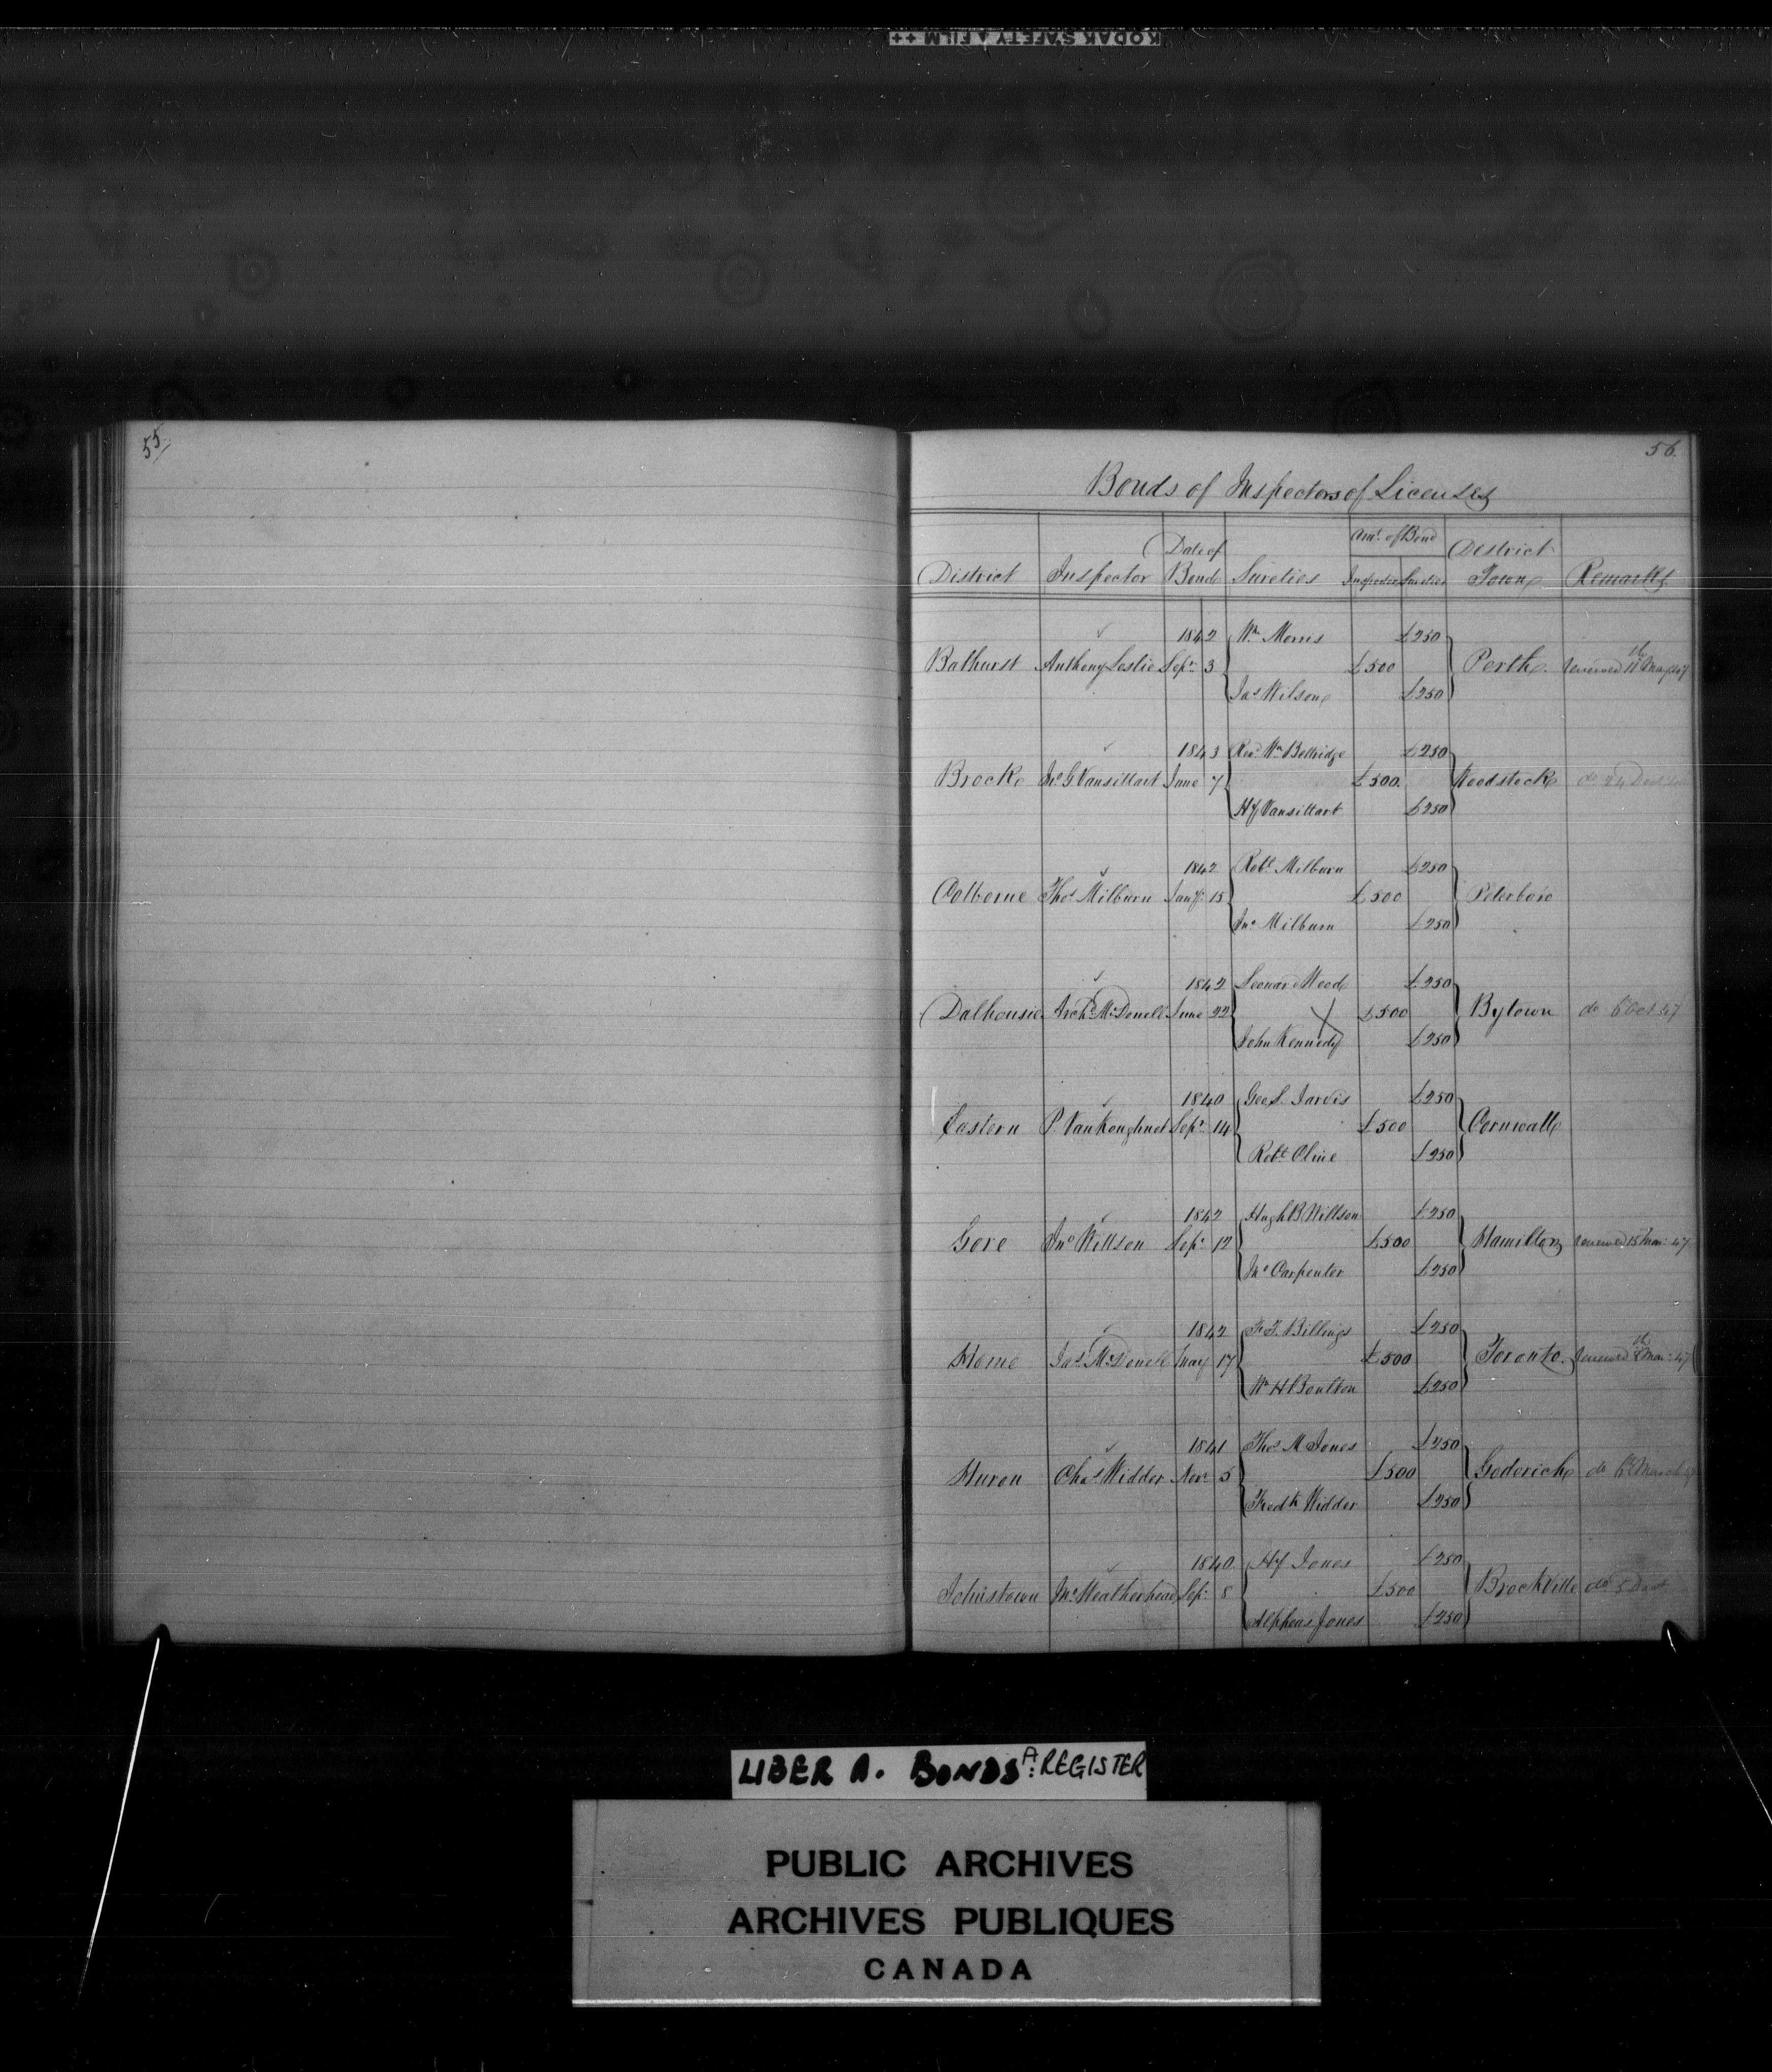 KODAK SAFETY FILM
55
56.
Bonds of Inspectors of Licenses
District Inspector Date of Bond Sureties Amt. of Bond Inspector Sureties District Town Remarks
1842 Wm Morris £250
Bathurst Anthony Leslie Sepr. 3 £500 Perth. renewed 11th May 47
Jas Wilson £250
1843 Revd Wm Bettridge £250
Brock Jno G Vansittart June 7 £500. Woodstock do 24
Hy Vansittart £250
1842 Robt Milburn £250
Colborne Thos Milburn Jany. 15 £500 Peterboro
Jno Milburn £250
1842 Leonard Wood £250
Dalhousie Archd McDonell June 22 £500 Bytown do 6 Oct 47
John Kennedy £250
1840 Geo S. Jarvis £250
Eastern P. VanKoughnet Sepr 14 £500 Cornwall
Robt Cline £250
1842 Hugh B Willson £250
Gore Jno Willson Sepr 12 £500 Hamilton renewed 15 Mar: 47
Jno Carpenter £250
1842 F. T. Billings £250
Home Jas McDonell May 17 £500 Toronto. renewed 8th Mar: 47
Wm H Boulton £250
1841 Thos M Jones £250
Huron Chas Widder Novr 5 £500 Goderich do March 47
Fredk Widder £250
1840. Hy Jones £250
Johnstown Jno Weatherhead Sepr. 8 £500 Brockville do 5
Alpheus Jones £250
LIBER A. BONDS A: REGISTER
PUBLIC ARCHIVES
ARCHIVES PUBLIQUES
CANADA